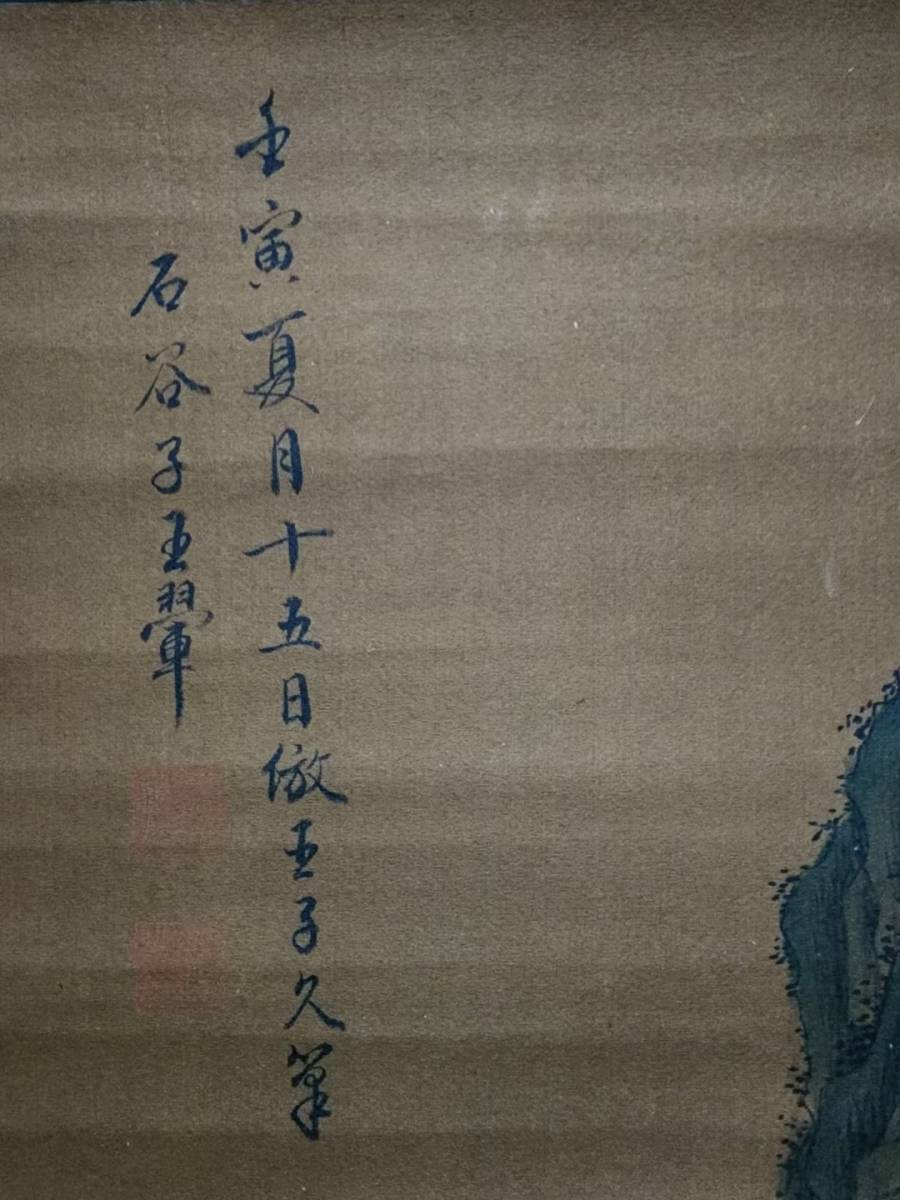 壬寅夏月十五日倣王子久筆
石谷子王翬